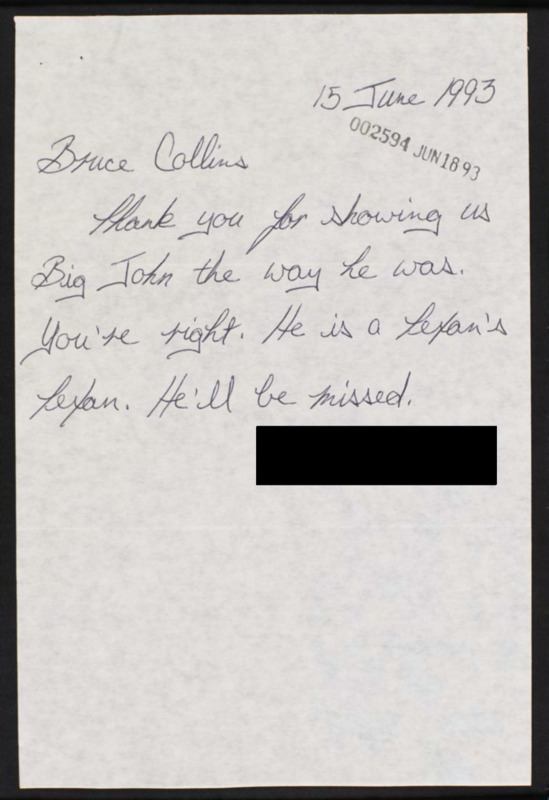 15 June 1993
002594 JUN18 93
Bruce Collins
Thank you for showing us
Big John the way he was.
You're right. He is a Texan's
Texan. He'll be missed.